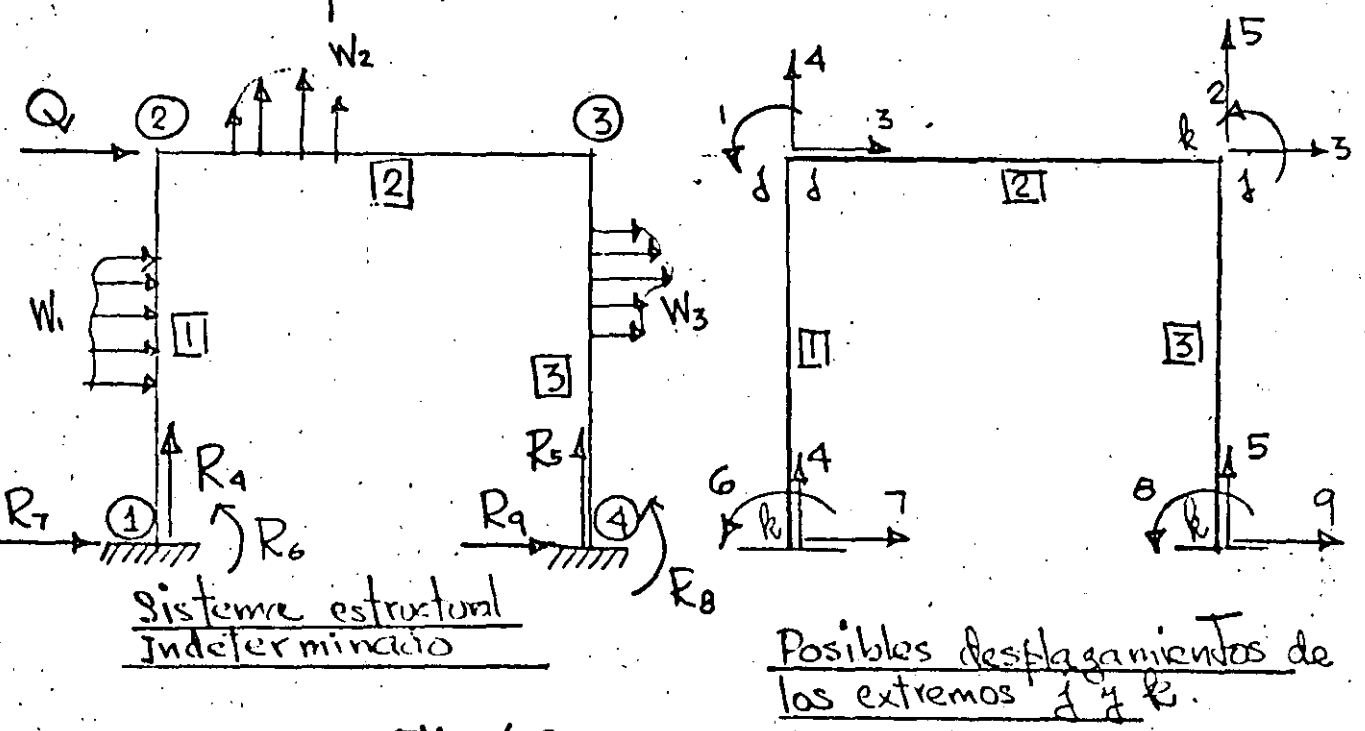 W2
Q
2
3
2
W1
1
W3
3
R4
R5
R7
1
R6
R9
4
R8
Sistema estructural
Indeterminado
4
5
1
3
2
k
3
j
j
2
j
1
3
6
4
k
7
8
5
k
9
Posibles desplazamientos de
los extremos j y k.